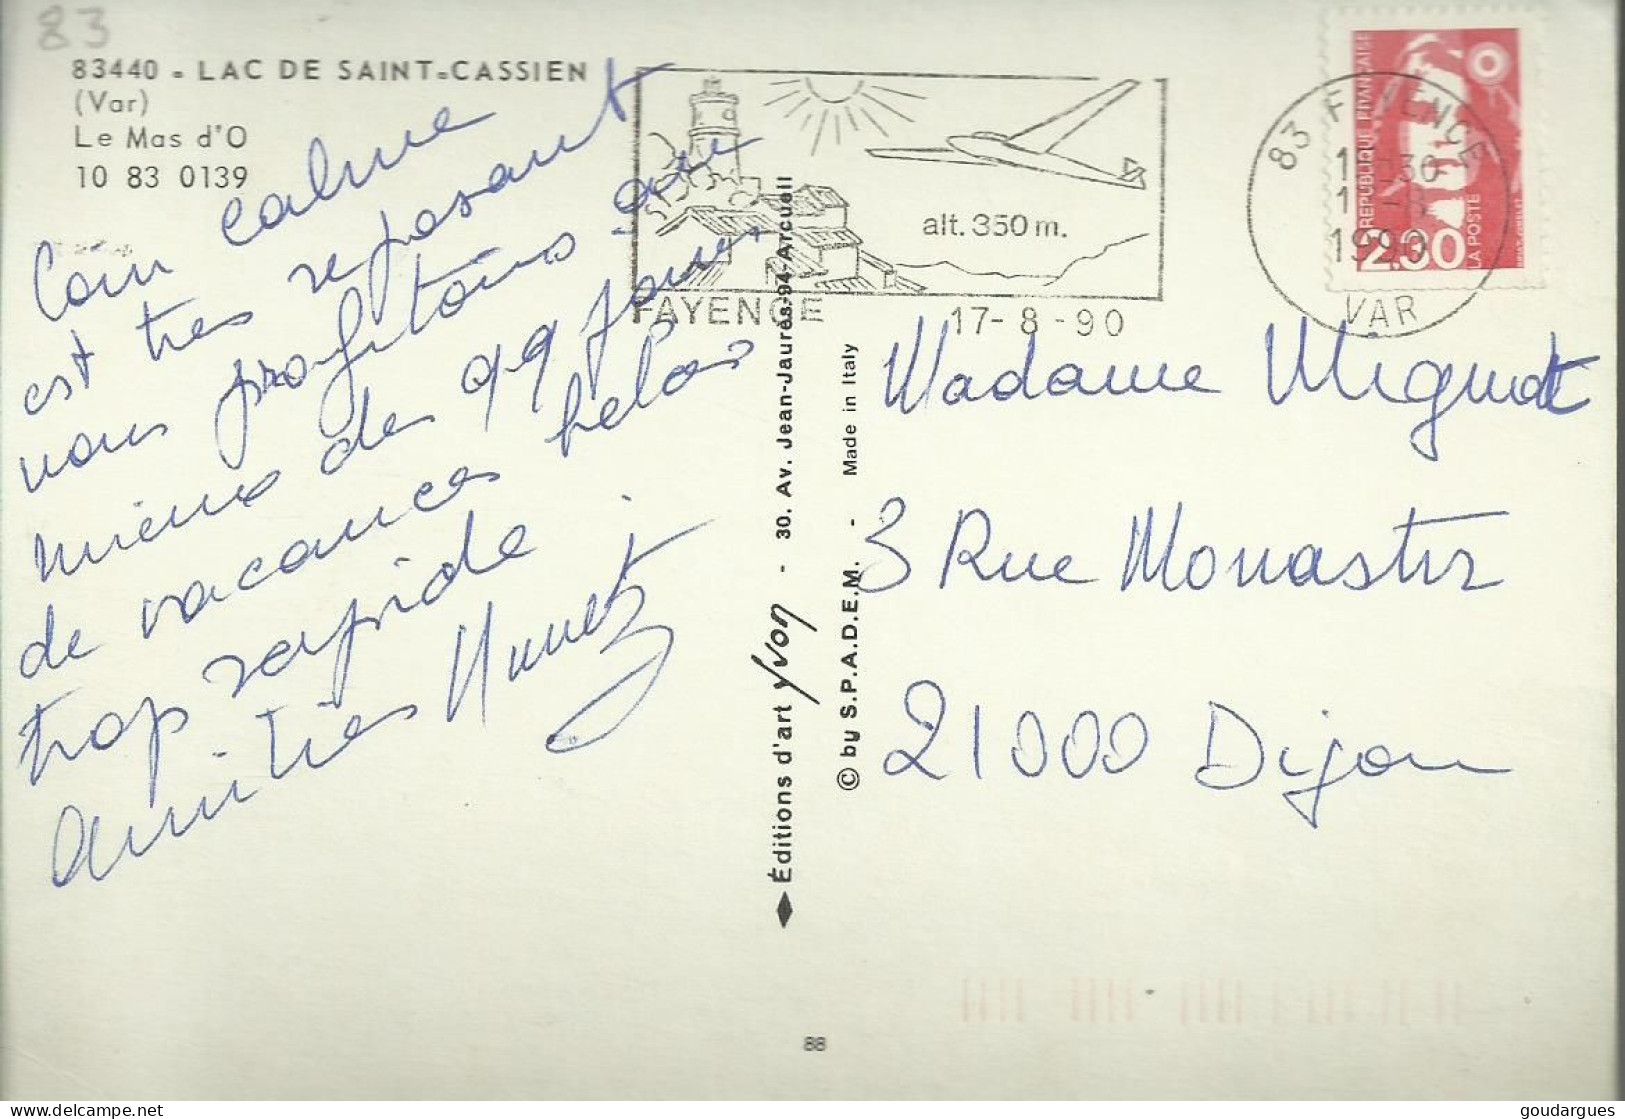 83
83440 - LAC DE SAINT-CASSIEN
(Var)
Le Mas d'O
10 83 0139
Coin calme
est très reposant
nous profitons au
mieux des qq jours
de vacances hélas
trop rapide
amitiés
alt. 350 m.
FAYENCE
17-8-90
83 FAYENCE
1990
VAR
REPUBLIQUE FRANÇAISE
2.30
LA POSTE
Éditions d'art Yvon - 30. Av. Jean-Jaurès-94-Arcueil
© by S.P.A.D.E.M. - Made in Italy
Madame Mignot
3 Rue Monastir
21000 Dijon
88
goudargues